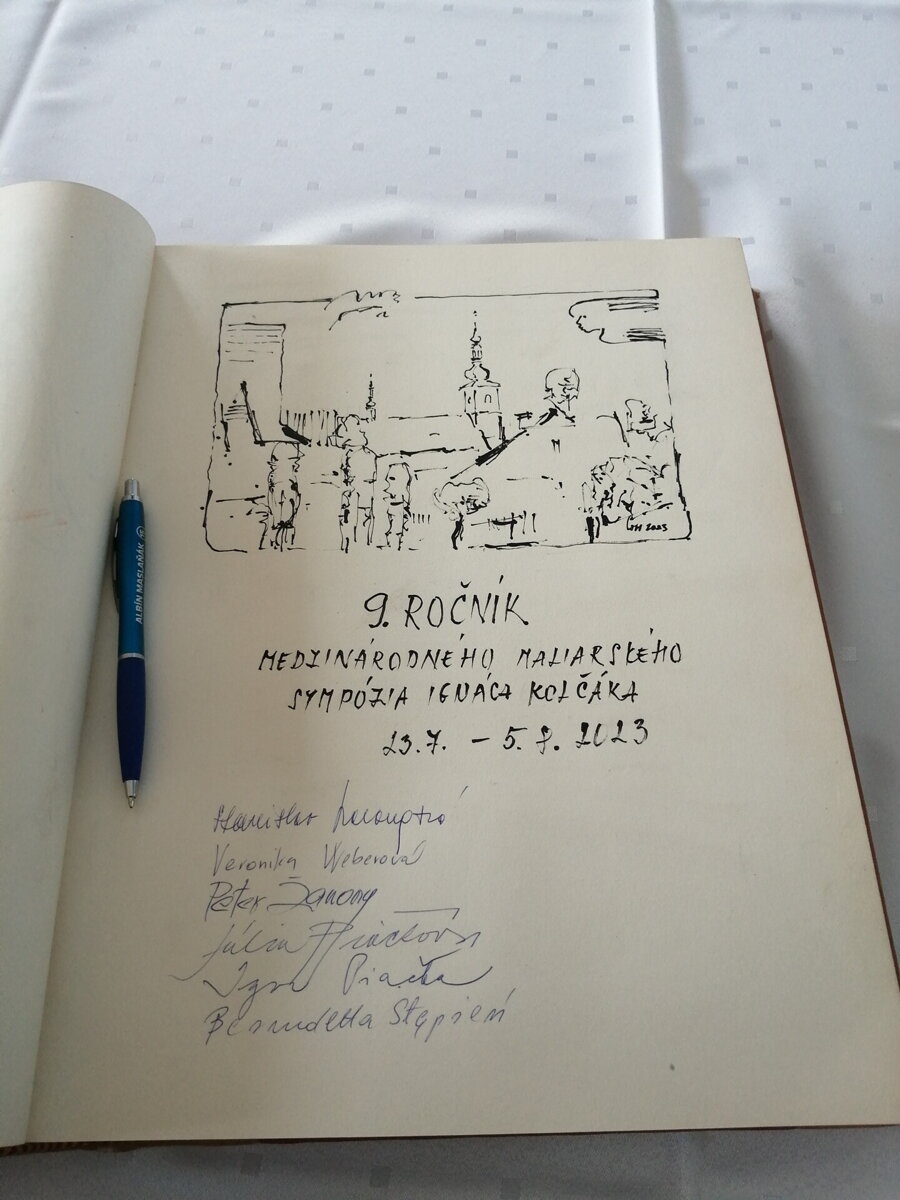 9. ROČNÍK
MEDZINÁRODNÉHO MALIARSKÉHO
SYMPÓZIA IGNÁCA KOLČÁKA
23.7. – 5.8. 2023
Stanislav
Veronika Weberová
Peter Žarnovy
Júlia Piačková
Igor Piačka
Bernadetta Stępień
ALBÍN MASLAŇÁK
2023